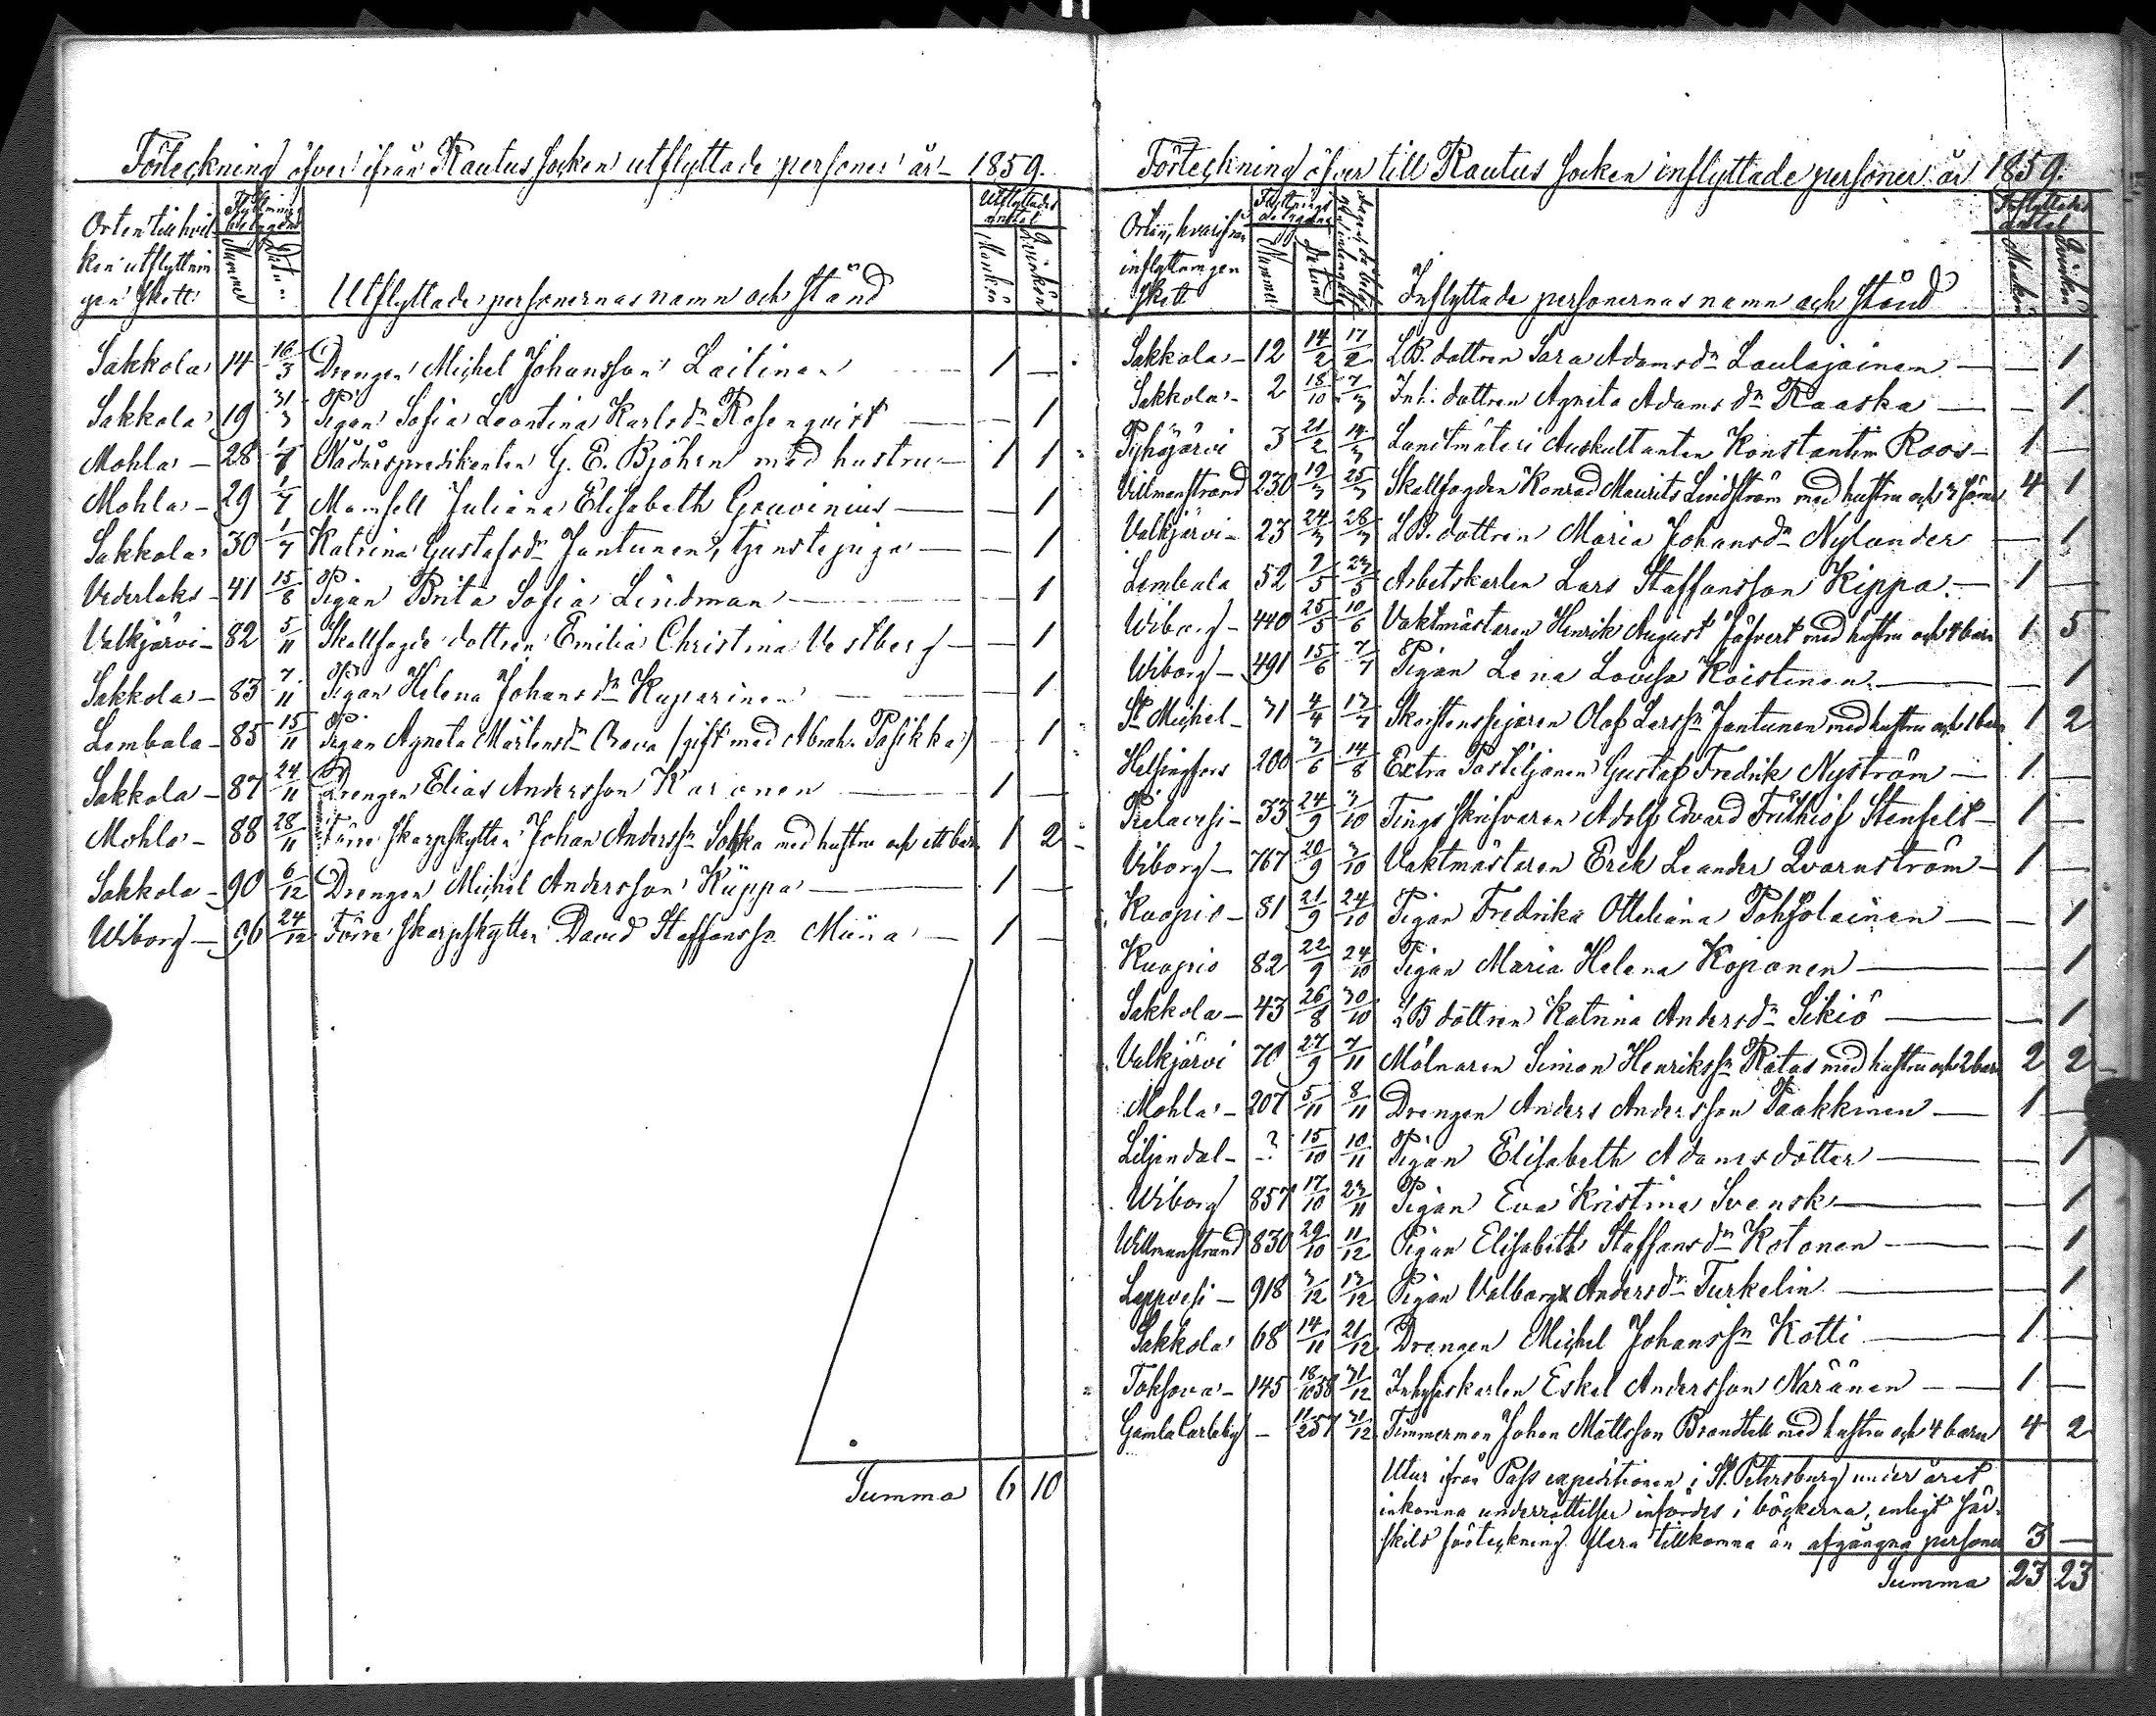 Förteckning öfver ifrån Rautus socken utflyttade personer år 1859.
Orten till hvil
ken utflyttnin
gen skett
Flyttnings
betygens
Nummer
Datum
Utflyttade personernas namn och stånd
Utflyttades
antal
Mankön
Qvinkön
Sakkola 14 16/3 Drengen Michel Johansson Lailinen 1 —
Sakkola 19 31/3 Pigan Sofia Leontina Karlsdr Rosenqvist — 1
Mohla 28 Nådårspredikanten G. E. Björn med hustru 1 1
Mohla 29 1/7 Mamsell Juliana Elisabeth Grauvinius — 1
Sakkola 30 1/7 Katrina Gustafsdr Jantunen, tjenstepiga — 1
Vederlaks 41 15/8 Pigan Brita Sofia Lindman — 1
Valkjärvi 82 5/11 Skallfogde dottren Emilia Christina Vestberg — 1
Sakkola 83 7/11 Pigan Helena Johansdr Kuparinen — 1
Lembala 85 15/11 Pigan Agneta Mårtensdr (gift med Abrah. Pasikka) — 1
Sakkola 87 24/11 Drengen Elias Andersson Karonen 1 —
Mohla 88 28/11 Förre Skarpskytten Johan Anderssn Sokka med hustru och ett barn 1 2
Sakkola 90 6/12 Drengen Michel Andersson Kiippa 1 —
Wiborg 96 24/12 Förre Skarpskytten David Staffanssn Miina 1 —
Summa 6 10
Förteckning öfver till Rautus socken inflyttade personer år 1859.
Orten, hvarifrån
inflyttningen
skett
Flyttnings
betygens
Nummer
Datum
Inflyttade personernas namn och stånd
Inflyttades
antal
Mankön
Qvinkön
Sakkola 12 14/2 17/2 LB. dottren Sara Adamsdr Laulajainen — 1
Sakkola 2 18/10 7/3 Inh. dottren Agneta Adamsdr Raaska — 1
Pyhäjärvi 3 21/2 14/3 Landtmäteri Auskultanten Konstantin Roos 1 —
Villmanstrand 230 19/3 25/3 Skallfogden Konrad Maurits Lindström med hustru och 3 söner 4 1
Valkjärvi 23 24/3 28/3 LB. dottren Maria Johansdr Nylander — 1
Lembala 52 7/5 23/5 Arbetskarlen Lars Staffansson Kippa 1 —
Wiborg 440 25/5 10/6 Vaktmästaren Henrik August Jäfvert med hustru och 4 barn 1 5
Wiborg 491 15/6 7/7 Pigan Lena Lovisa Koistinen — 1
St Michel 31 4/4 13/7 Skorstensfejaren Olof Larssn Jantunen med hustru och 1 barn 1 2
Helsingfors 200 3/6 14/8 Extra Postiljonen Gustaf Fredrik Nyström 1 —
Pielavesi 33 24/9 3/10 Tings Skrifvaren Adolf Edvard Frithiof Stenfelt 1 —
Viborg 767 20/9 3/10 Vaktmästaren Erik Leander Qvarnström 1 —
Kuopio 81 21/9 24/10 Pigan Fredrika Otteliana Pohjolainen — 1
Kuopio 82 22/9 24/10 Pigan Maria Helena Koponen — 1
Sakkola 43 26/8 30/10 LB dottren Katrina Andersdr Sikiö — 1
Valkjärvi 70 27/9 7/11 Mölnaren Simon Henrikssn Ratas med hustru och 2 barn 2 2
Mohla 207 5/11 8/11 Drengen Anders Andersson Paakkinen 1 —
Liljendal ? 15/10 10/11 Pigan Elisabeth Adamsdotter — 1
Wiborg 857 17/10 23/11 Pigan Eva Kristina Svensk — 1
Willmanstrand 830 29/10 11/12 Pigan Elisabeth Staffansdr Kotonen — 1
Lappvesi 918 3/12 13/12 Pigan Valborg Andersdr Turkelin — 1
Sakkola 68 14/11 21/12 Drengen Michel Johanssn Kotti 1 —
Toksova 145 18/10 58 31/12 Inhyseskarlen Eskel Andersson Naränen 1 —
Gamla Carleby — 11/2 57 31/12 Timmerman Johan Mattsson Brandtell med hustru och 4 barn 4 2
Utur ifrån Pass expeditionen i St. Petersburg under året
inkomna underrättelser infördes i böckerna, enligt sär-
skild förteckning flera tillkomna än afgångna personer 3 —
Summa 23 23